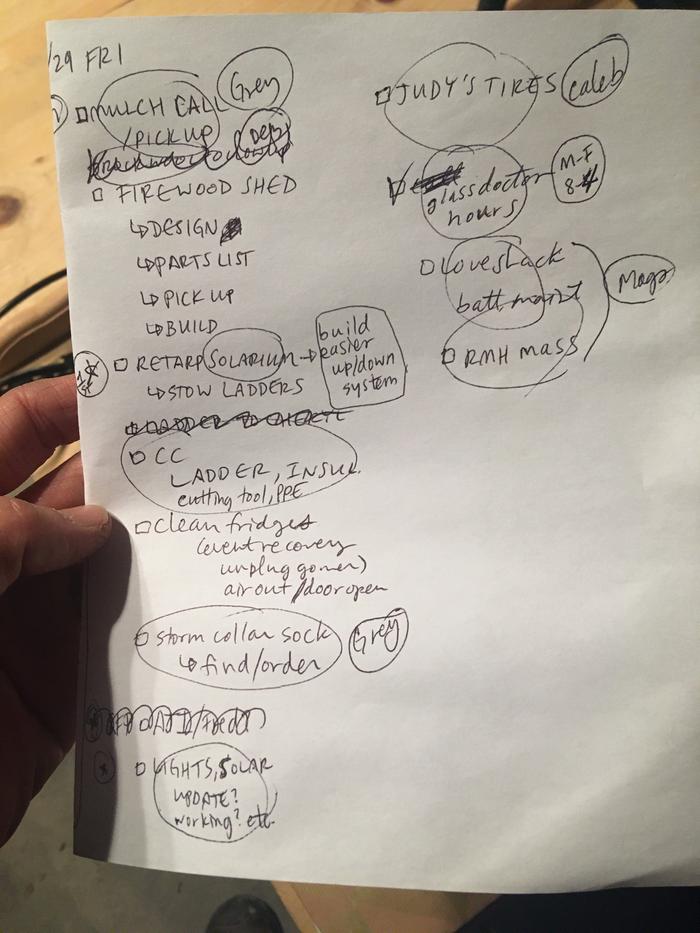 /29 FRI
MULCH CALL Grey
/PICK UP
FIREWOOD SHED
↳DESIGN
↳PARTS LIST
↳PICK UP
↳BUILD
RETARP SOLARIUM → build
easier
up/down
system
↳STOW LADDERS
CC
LADDER, INSUL
cutting tool, PPE
clean fridges
(event recovery
unplug
air out/door open
storm collar sock Grey
↳find/order
LIGHTS, SOLAR
UPDATE?
working? etc.
JUDY'S TIRES caleb
glass doctor M-F
hours 8-4
loveshack
batt. maint
RMH MASS